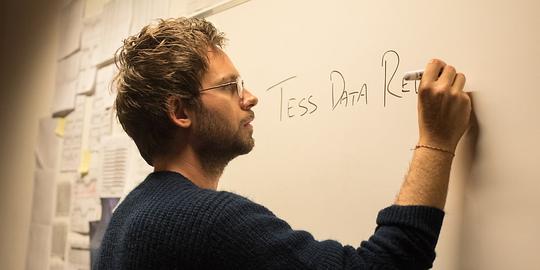 Tess Data Re